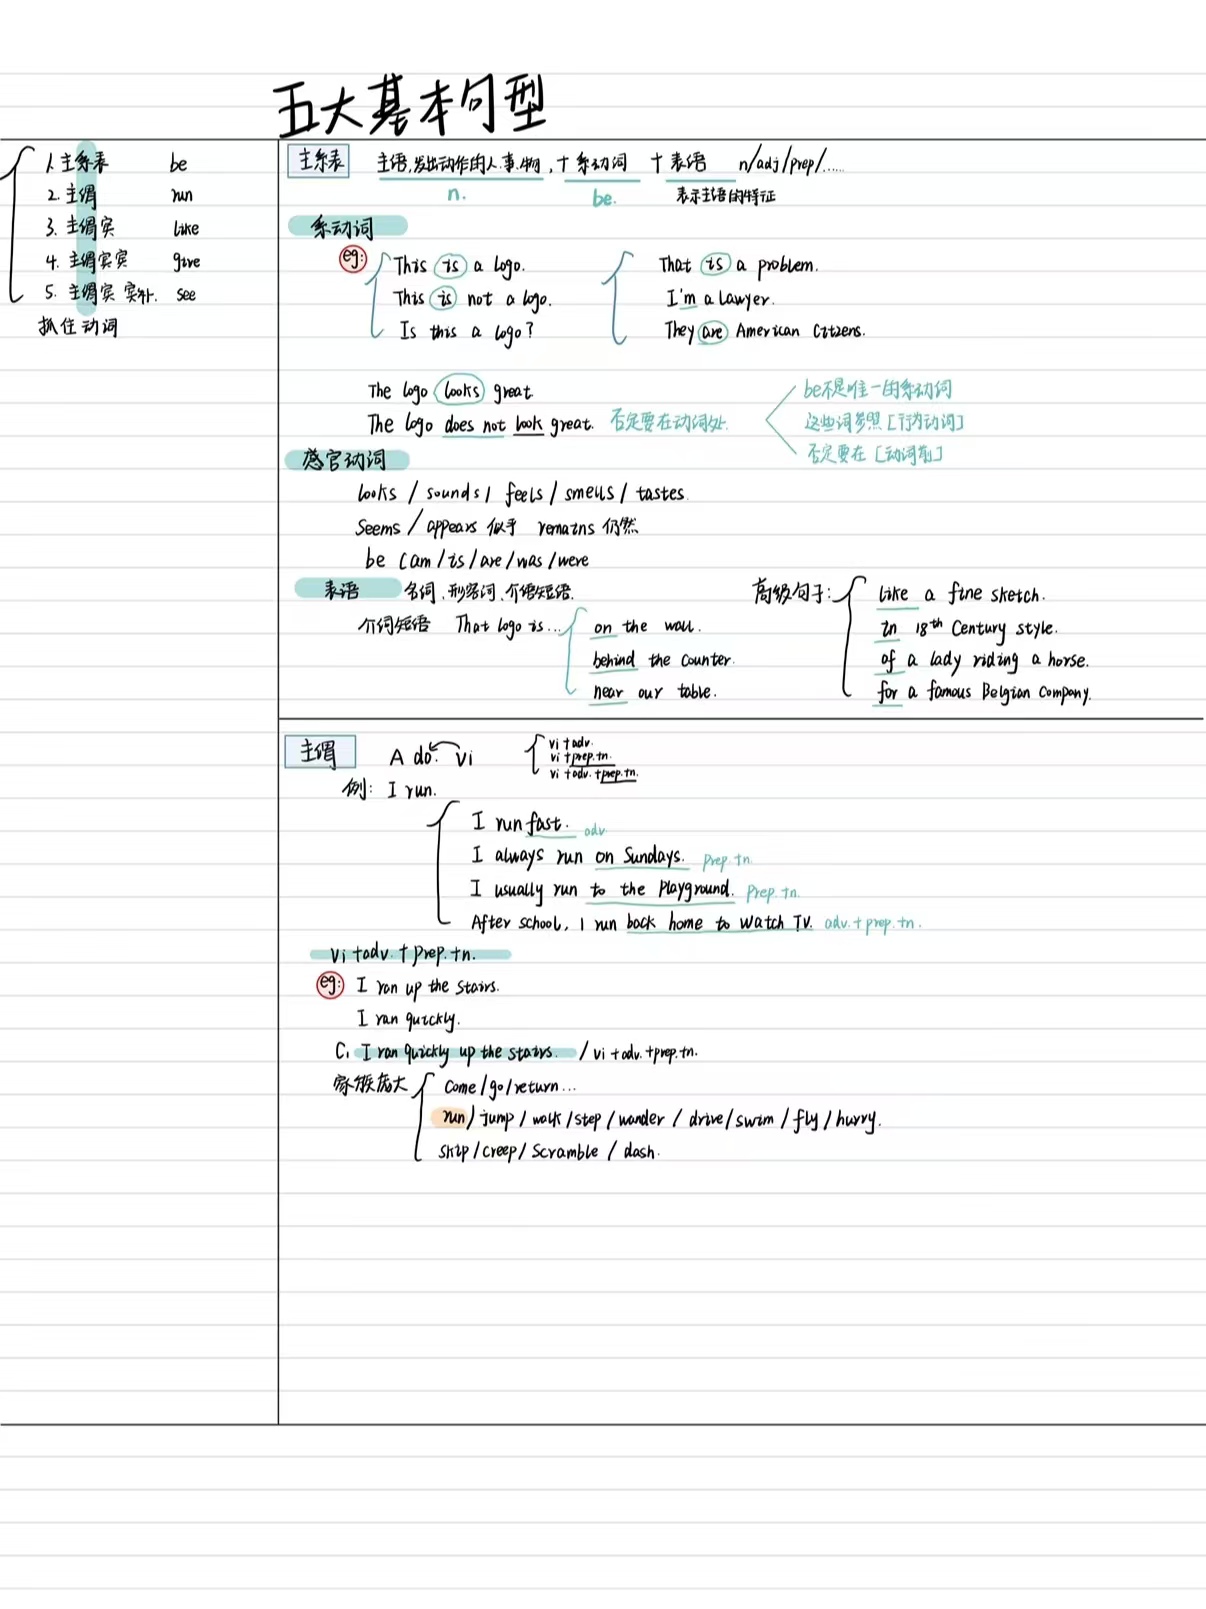 五大基本句型
1. 主系表 be
2. 主谓 run
3. 主谓宾 like
4. 主谓宾宾 give
5. 主谓宾宾补. see
抓住动词
主系表 主语,发出动作的人.事.物, + 系动词 + 表语 n/adj/prep/......
n. be. 表示主语的特征
系动词
eg: This is a logo. That is a problem.
This is not a logo. I'm a lawyer.
Is this a logo? They are American Citizens.
The logo looks great. be不是唯一的系动词
The logo does not look great. 否定要在动词处. 这些词参照[行为动词]
否定要在[动词前]
感官动词
looks / sounds / feels / smells / tastes.
Seems / appears 似乎 remains 仍然
be (am / is / are / was / were
表语 名词、形容词、介语短语. 高级句子: like a fine sketch.
介词短语 That logo is... on the wall. in 18th Century style.
behind the counter. of a lady riding a horse.
near our table. for a famous Belgian Company.
主谓 A do. vi vi+adv.
vi+prep.+n.
vi+adv.+prep.+n.
例: I run.
I run fast. adv
I always run on Sundays. prep.+n.
I usually run to the playground. prep.+n.
After school, I run back home to watch TV. adv.+prep.+n.
vi+adv.+prep.+n.
eg: I ran up the stairs.
I ran quickly.
C, I ran quickly up the stairs. / vi+adv.+prep.+n.
家族庞大 Come/go/return...
run/jump/walk/step/wander/drive/swim/fly/hurry.
skip/creep/scramble/dash.